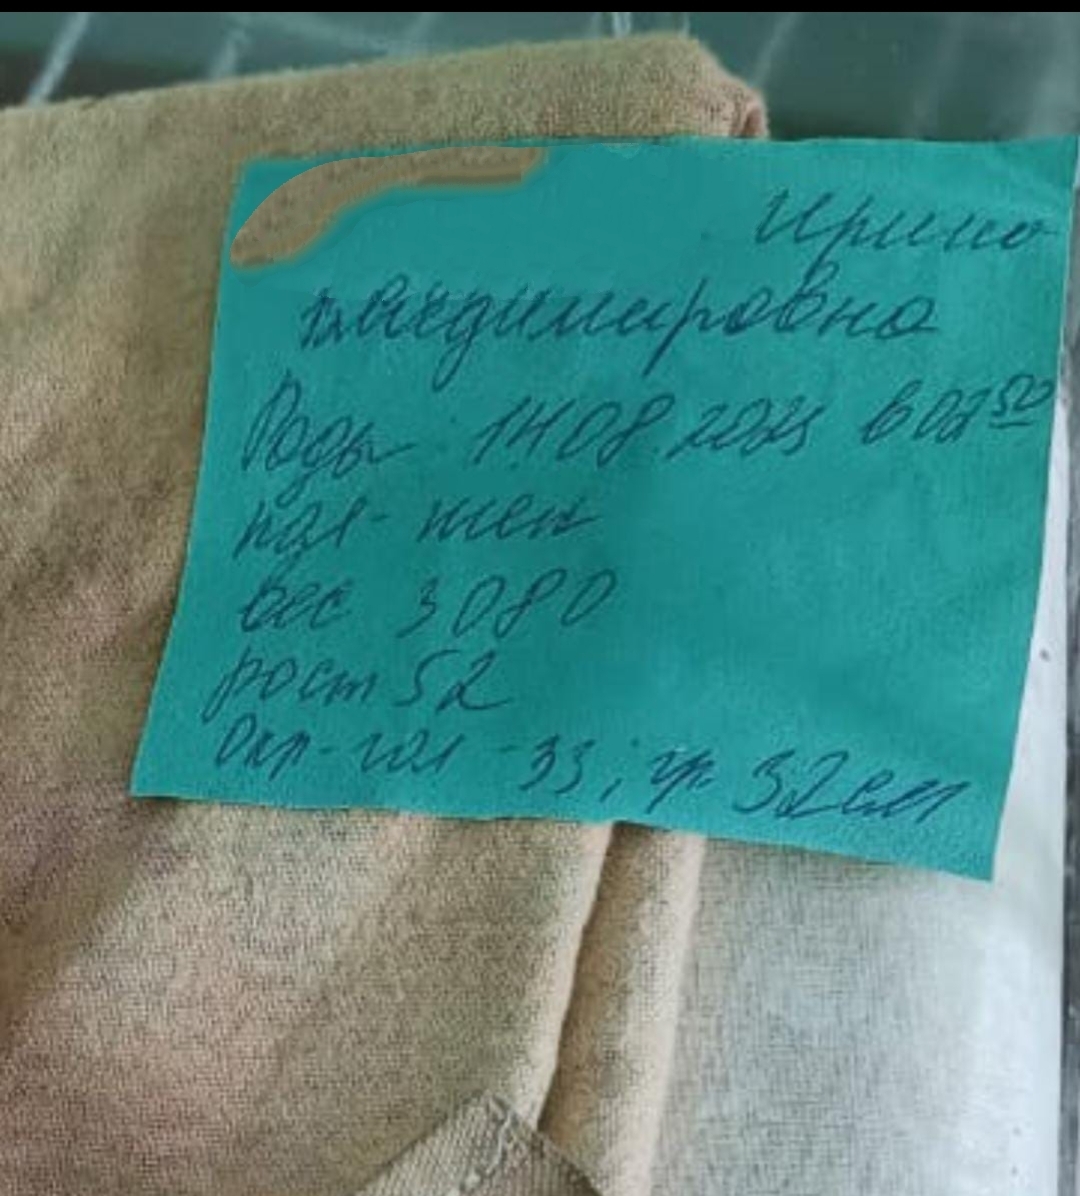 Ирина
Владимировна
Роды 14.08.2025 в 07 50
пол - жен
вес 3080
рост 52
Окр-гол - 33 ; гр. 32 см